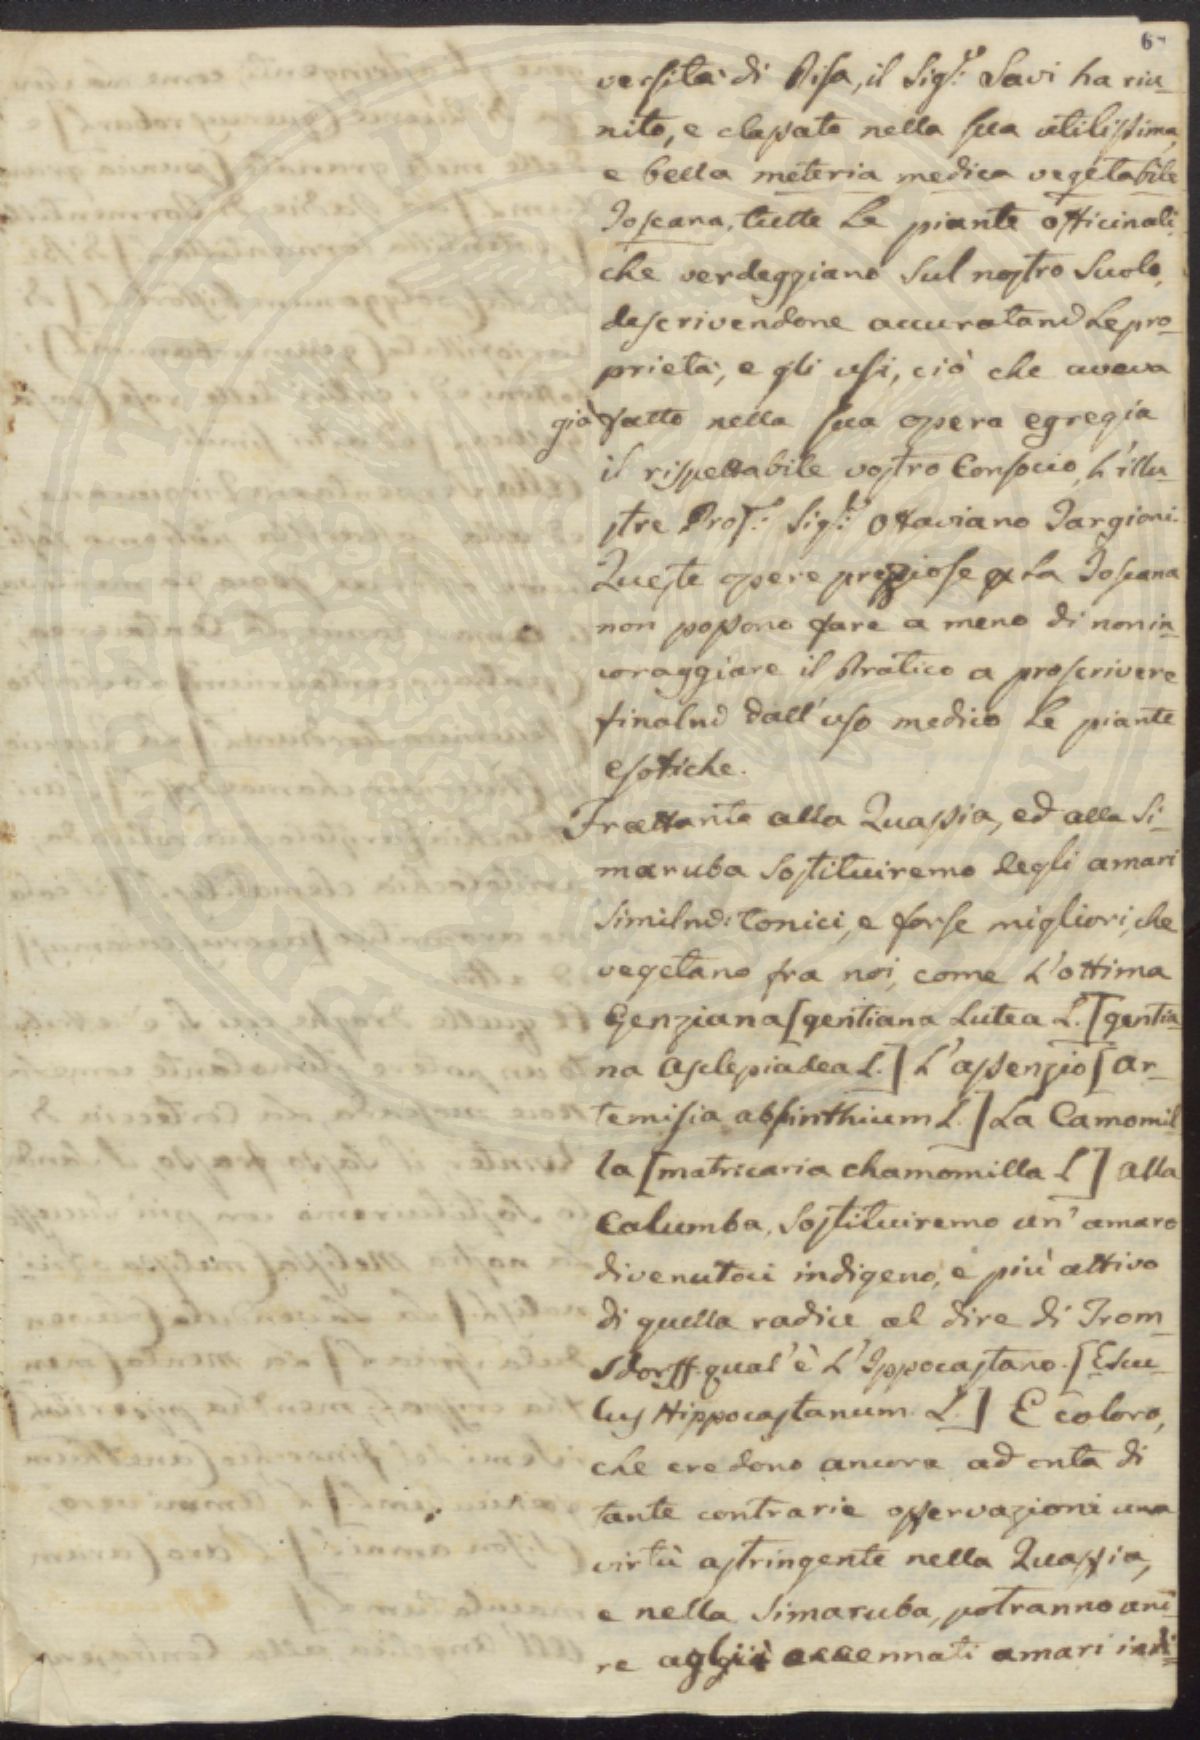 versità di Pisa, il Sig.r Savi ha riu-
nito, e classato nella sua utilissima,
e bella meteria medica vegetabile
Toscana, tutte le piante officinali,
che verdeggiano sul nostro suolo,
descrivendone accuratam.e le pro-
prietà, e gli usi, ciò che aveva
già fatto nella sua opera egregia
il rispettabile vostro Consocio, l'illu-
stre Prof.r Sig.r Ottaviano Targioni.
Queste opere preziose p la Toscana
non possono fare a meno di non in-
coraggiare il Pratico a proscrivere
finalm.e dall'uso medico le piante
esotiche.
Frattanto alla Quassia, ed alla Si-
maruba sostituiremo degli amari
similm.e tonici, e forse migliori, che
vegetano fra noi, come l'ottima
Genziana [gentiana Lutea L. [gentia-
na Asclepiadea L.] l'assenzio [Ar-
temisia absinthium L.] La Camomil-
la [matricaria chamomilla L] alla
Calumba, sostituiremo un' amaro
divenutoci indigeno, e più attivo
di quella radice al dire di Trom-
sdorff qual' è l'Ippocastano. [Escu-
lus Hippocastanum. L.] E coloro,
che credono ancora ad onta di
tante contrarie osservazioni una
virtù astringente nella Quassia,
e nella Simaruba, potranno uni-
re agli accennati amari indi-